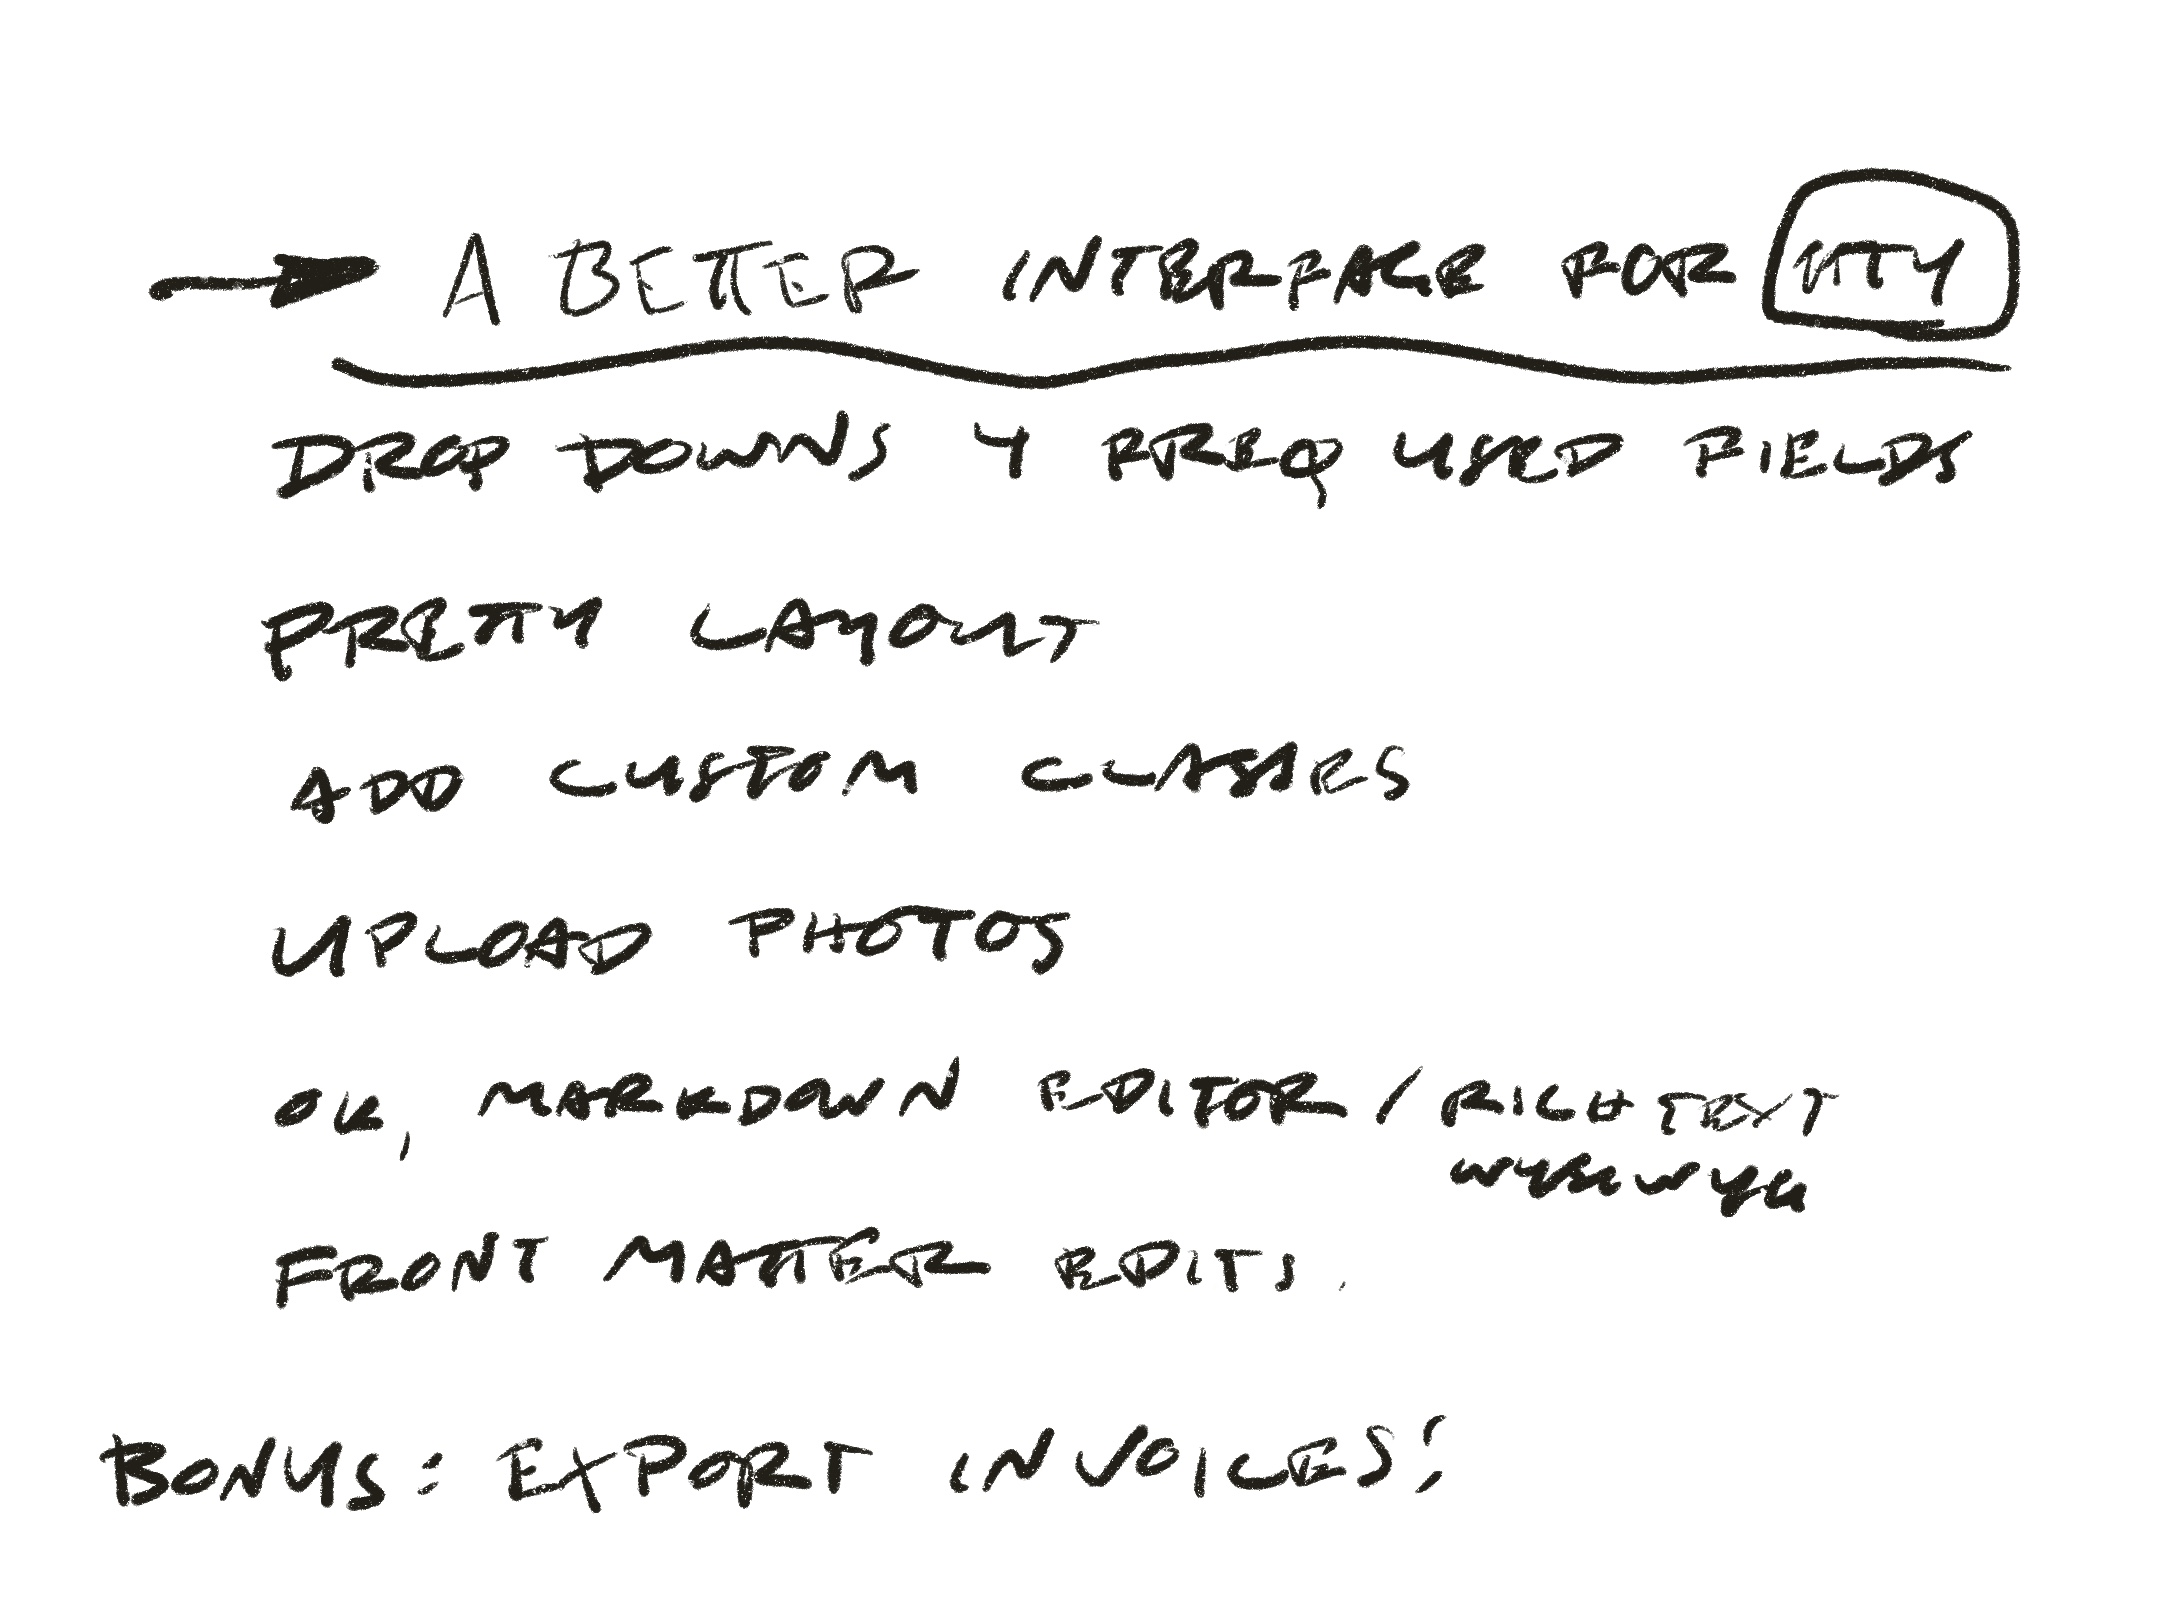 A BETTER INTERFACE FOR ITTY
DROP DOWNS 4 FREQ USED FIELDS
PRETTY LAYOUT
ADD CUSTOM CLASSES
UPLOAD PHOTOS
OK, MARKDOWN EDITOR / RICH TEXT
WYSIWYG
FRONT MATTER EDITS.
BONUS: EXPORT INVOICES!